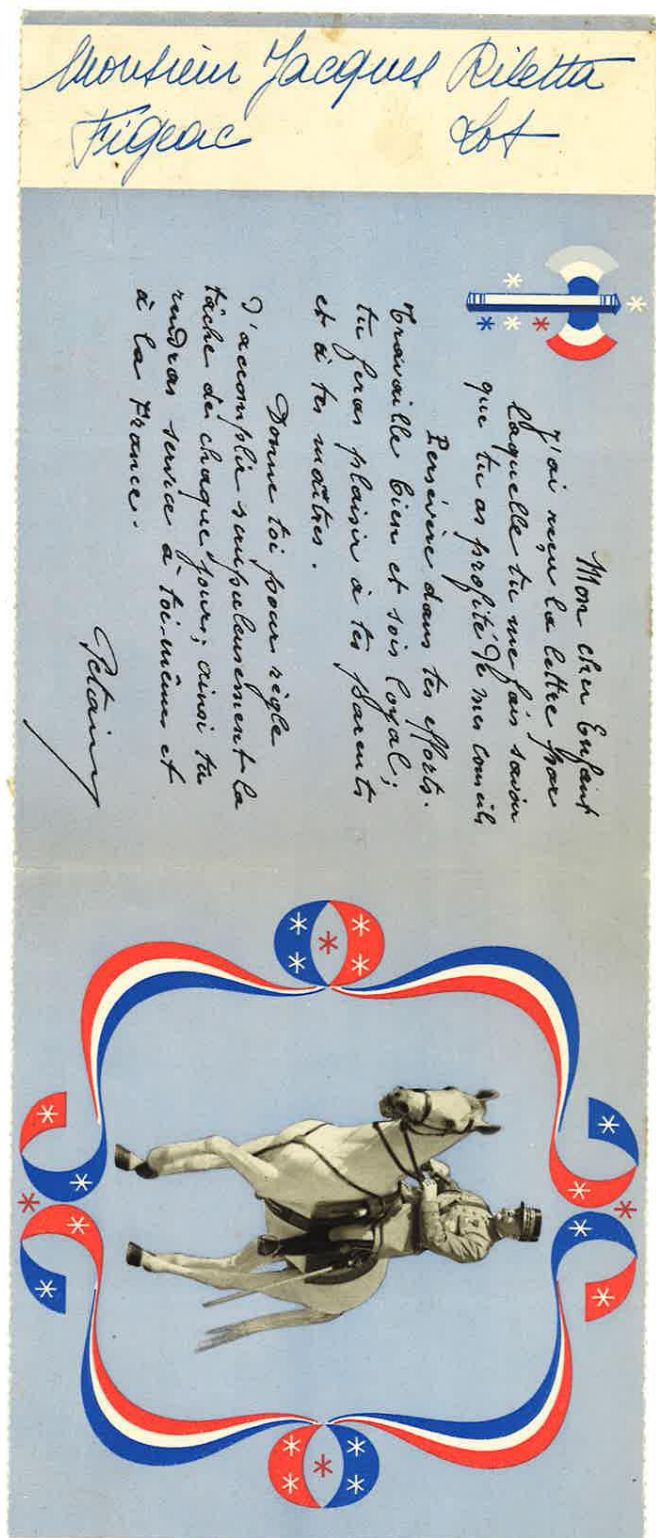 Monsieur Jacques Riletta
Figeac Lot
Mon cher Enfant
J'ai reçu la lettre par
laquelle tu me fais savoir
que tu as profité de mes conseils
Persévère dans tes efforts.
Travaille bien et sois loyal;
tu feras plaisir à tes parents
et à tes maîtres.
Donne toi pour règle
d'accomplir scrupuleusement la
tâche de chaque jour; ainsi tu
rendras service à toi-même et
à la France.
Ph Pétain